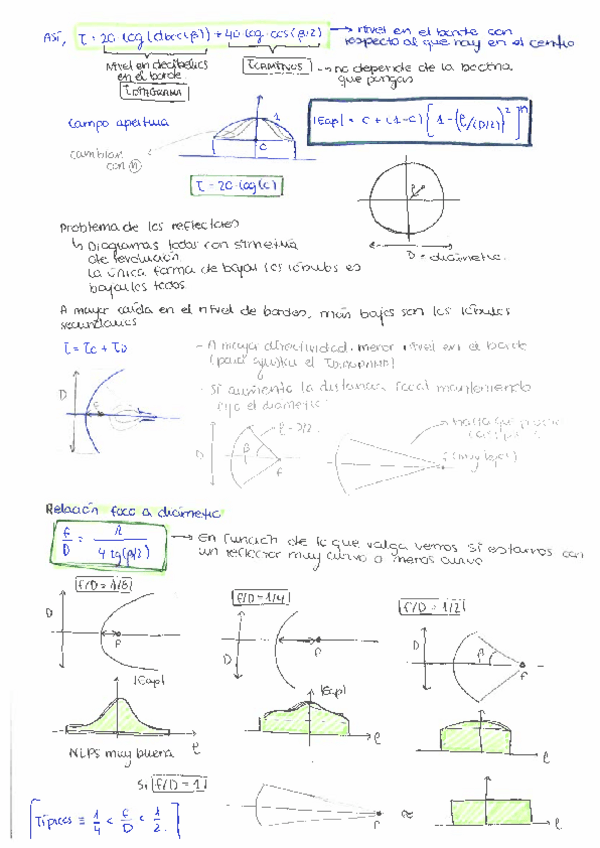 Así, τ = 20·log(dboc(β)) + 40·log·cos(β/2) → nivel en el borde con
respecto al que hay en el centro
Nivel en decibelios
en el borde
τDIAGRAMA
τCAMINOS → no depende de la bocina
que pongas
Campo apertura
|Eap| = C + (1-C) [1 - (ρ/(D/2))²]ⁿ
1
C
cambian
con n
τ = 20·log(C)
ρ
D = diámetro.
Problema de los reflectores
↳ Diagramas todos con simetría
de revolución
La única forma de bajar los lóbulos es
bajarlos todos
A mayor caída en el nivel de bordes, más bajos son los lóbulos
secundarios
τ = τC + τD
- A mayor directividad, menor nivel en el borde
- Si aumento la distancia focal manteniendo
fijo el diámetro
D
F
D
β
F
hasta que
(muy lejos)
Relación foco a diámetro
f/D = 1/(4 tg(β/2)) → En función de lo que valga vemos si estamos con
un reflector muy curvo o menos curvo
f/D = 1/8
f/D = 1/4
f/D = 1/2
D
F
D
F
D
β
F
|Eap|
ρ
|Eap|
ρ
ρ
NLPS muy buena
Si f/D = 1
F
≈
Típicos ≡ 1/4 < f/D < 1/2.